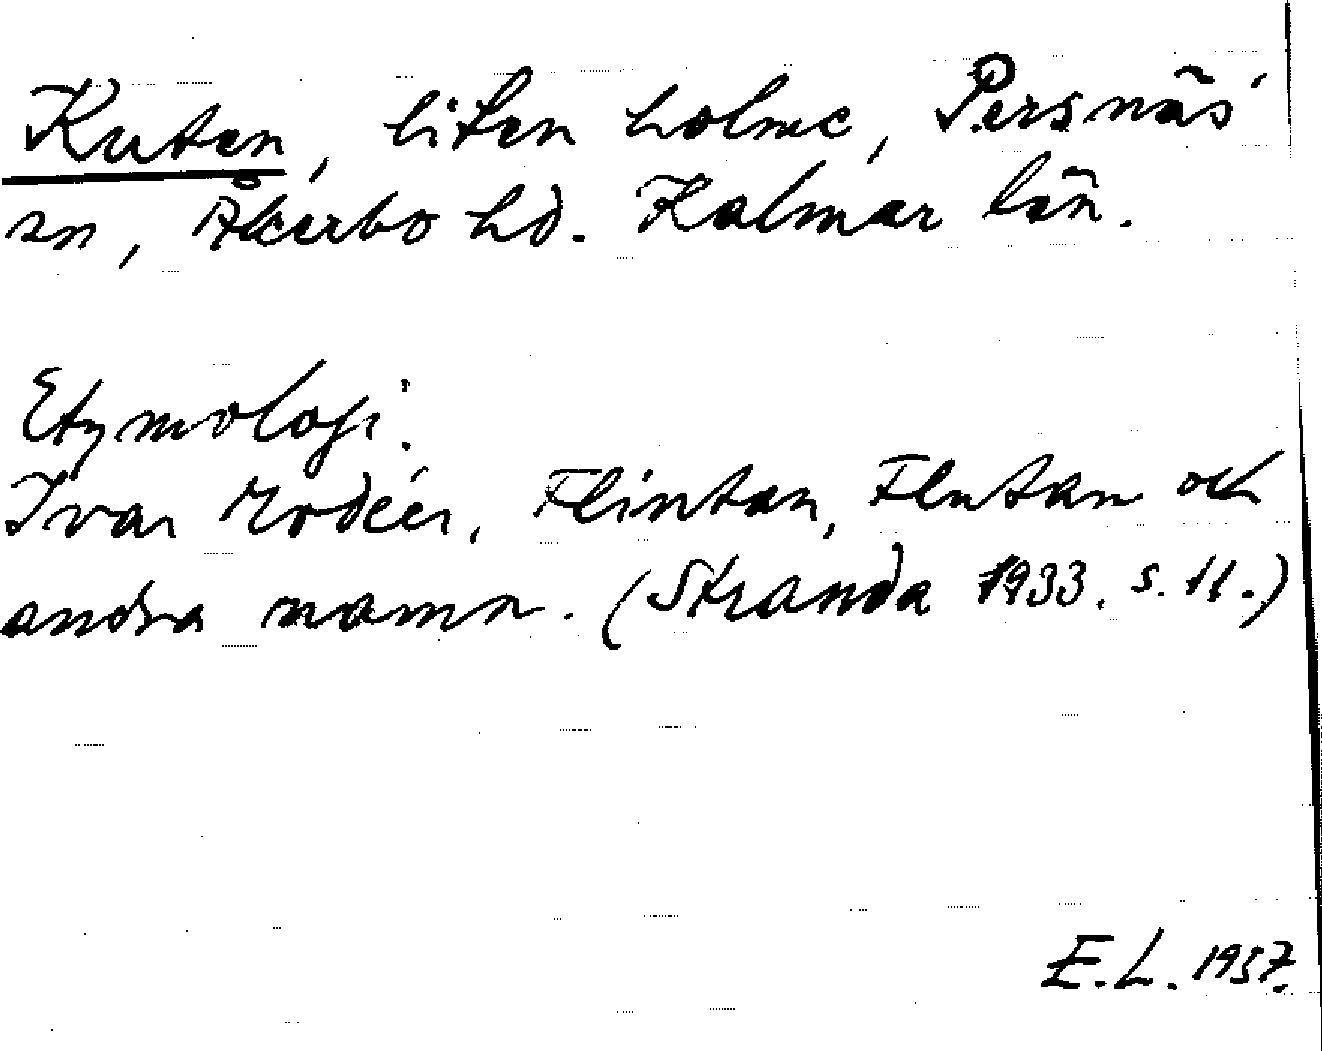 Kuten, liten holme, Persnäs
sn, Åkerbo hd. Kalmar län.
Etymologi:
Ivar Modéer, Flintan, Flutan och
andra namn. (Stranda 1933. s. 11.)
E.L. 1957.